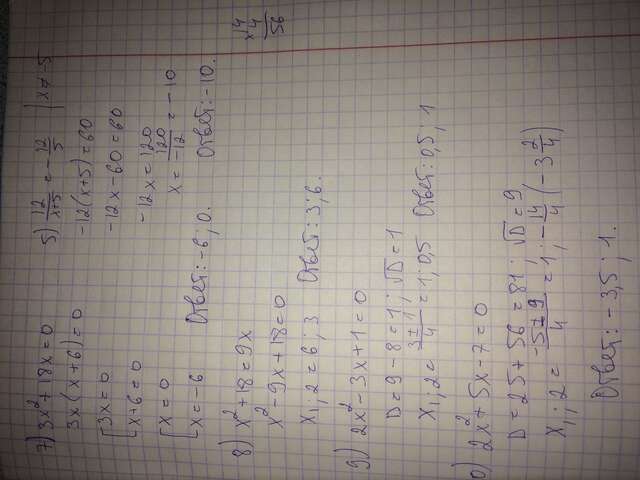 7) 3x² + 18x = 0
3x(x+6) = 0
[3x = 0
[x+6 = 0
[x = 0
[x = -6   Ответ: -6; 0.
5) 12/(x+5) = -12/5 | x ≠ -5
-12(x+5) = 60
-12x - 60 = 60
-12x = 120
x = 120/-12 = -10
Ответ: -10.
8) x² + 18 = 9x
x² - 9x + 18 = 0
x₁;₂ = 6; 3   Ответ: 3; 6.
14
×4
56
9) 2x² - 3x + 1 = 0
D = 9 - 8 = 1; √D = 1
x₁;₂ = (3±1)/4 = 1; 0,5   Ответ: 0,5; 1
0) 2x² + 5x - 7 = 0
D = 25 + 56 = 81; √D = 9
x₁;₂ = (-5±9)/4 = 1; -14/4 (-3 2/4)
Ответ: -3,5; 1.